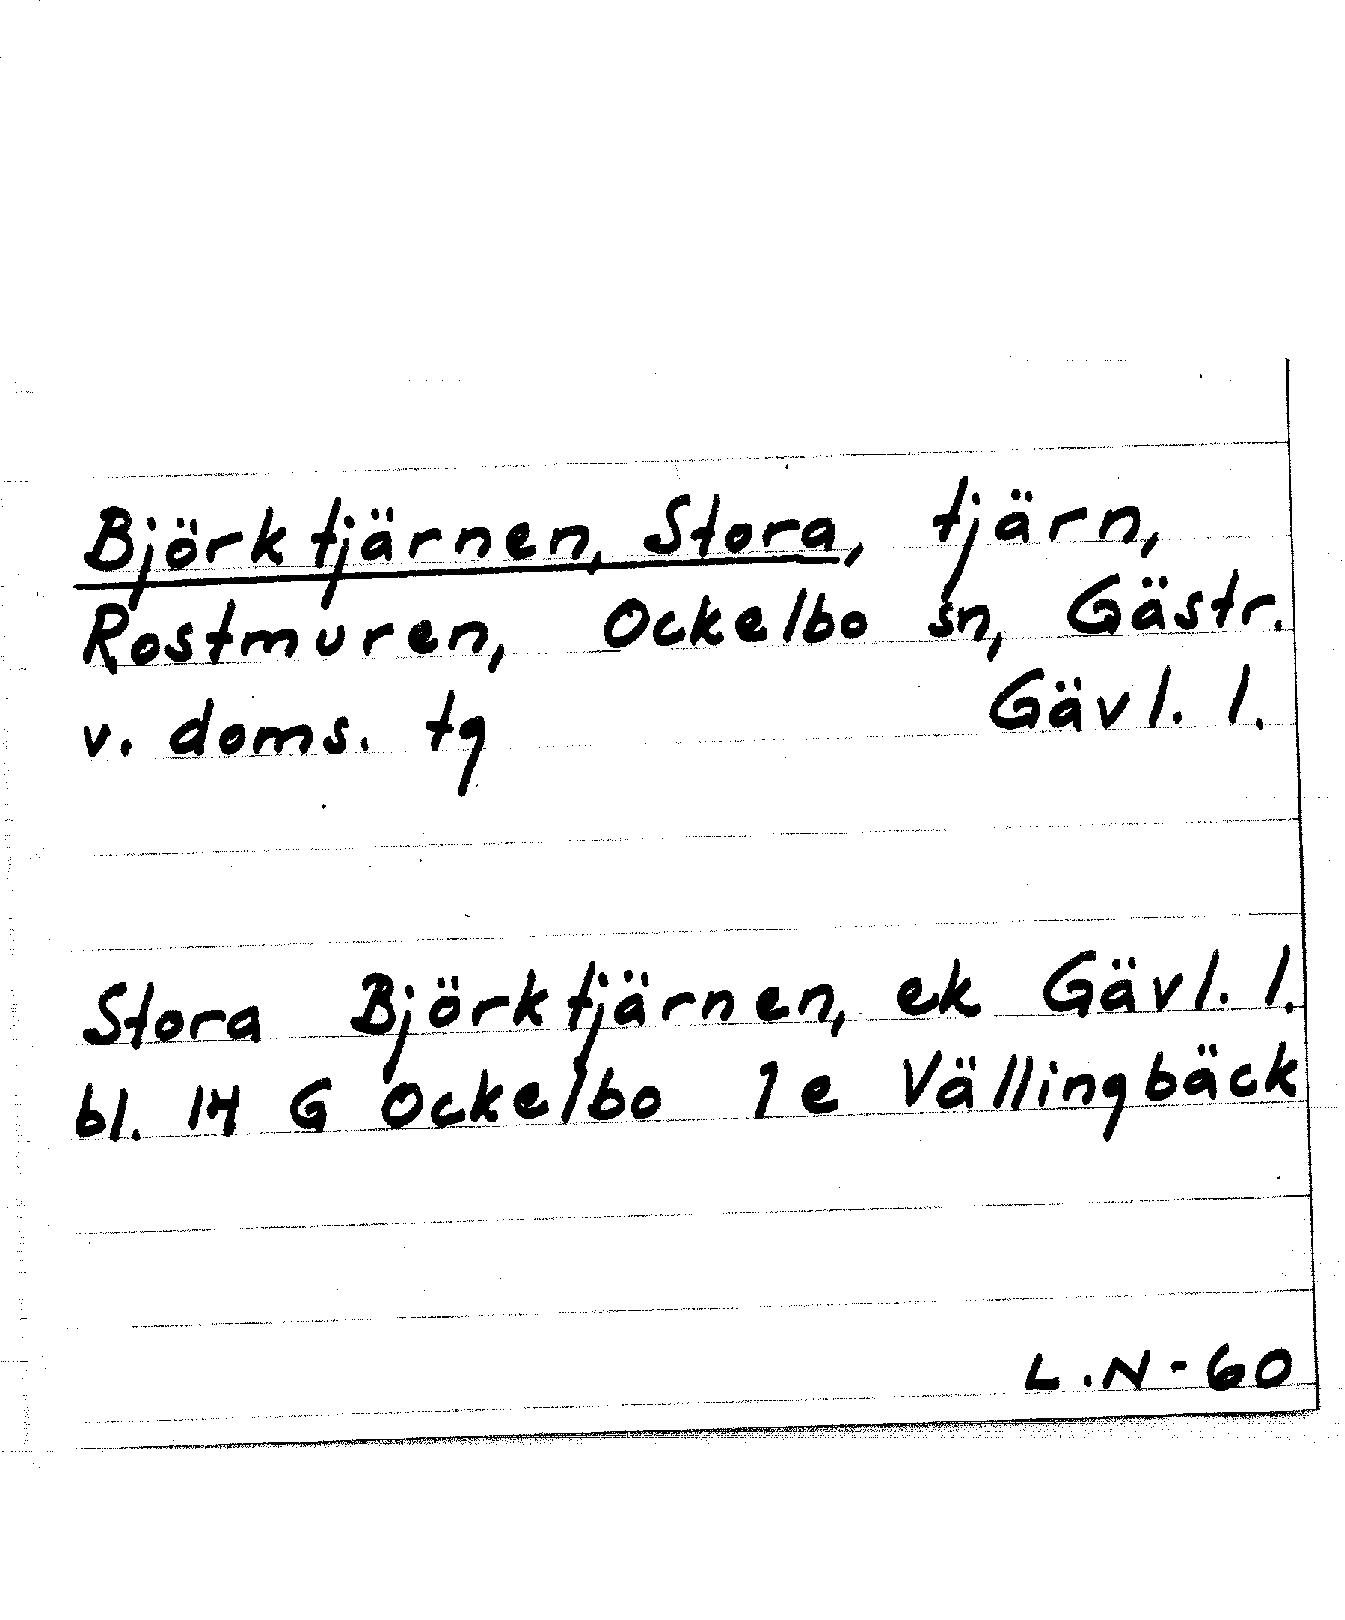 Björktjärnen, Stora, tjärn,
Rostmuren, Ockelbo sn, Gästr.
v. doms. tg Gävl. l.
Stora Björktjärnen, ek Gävl. l.
bl. 14 G Ockelbo 1 e Vällingbäck
L.N-60